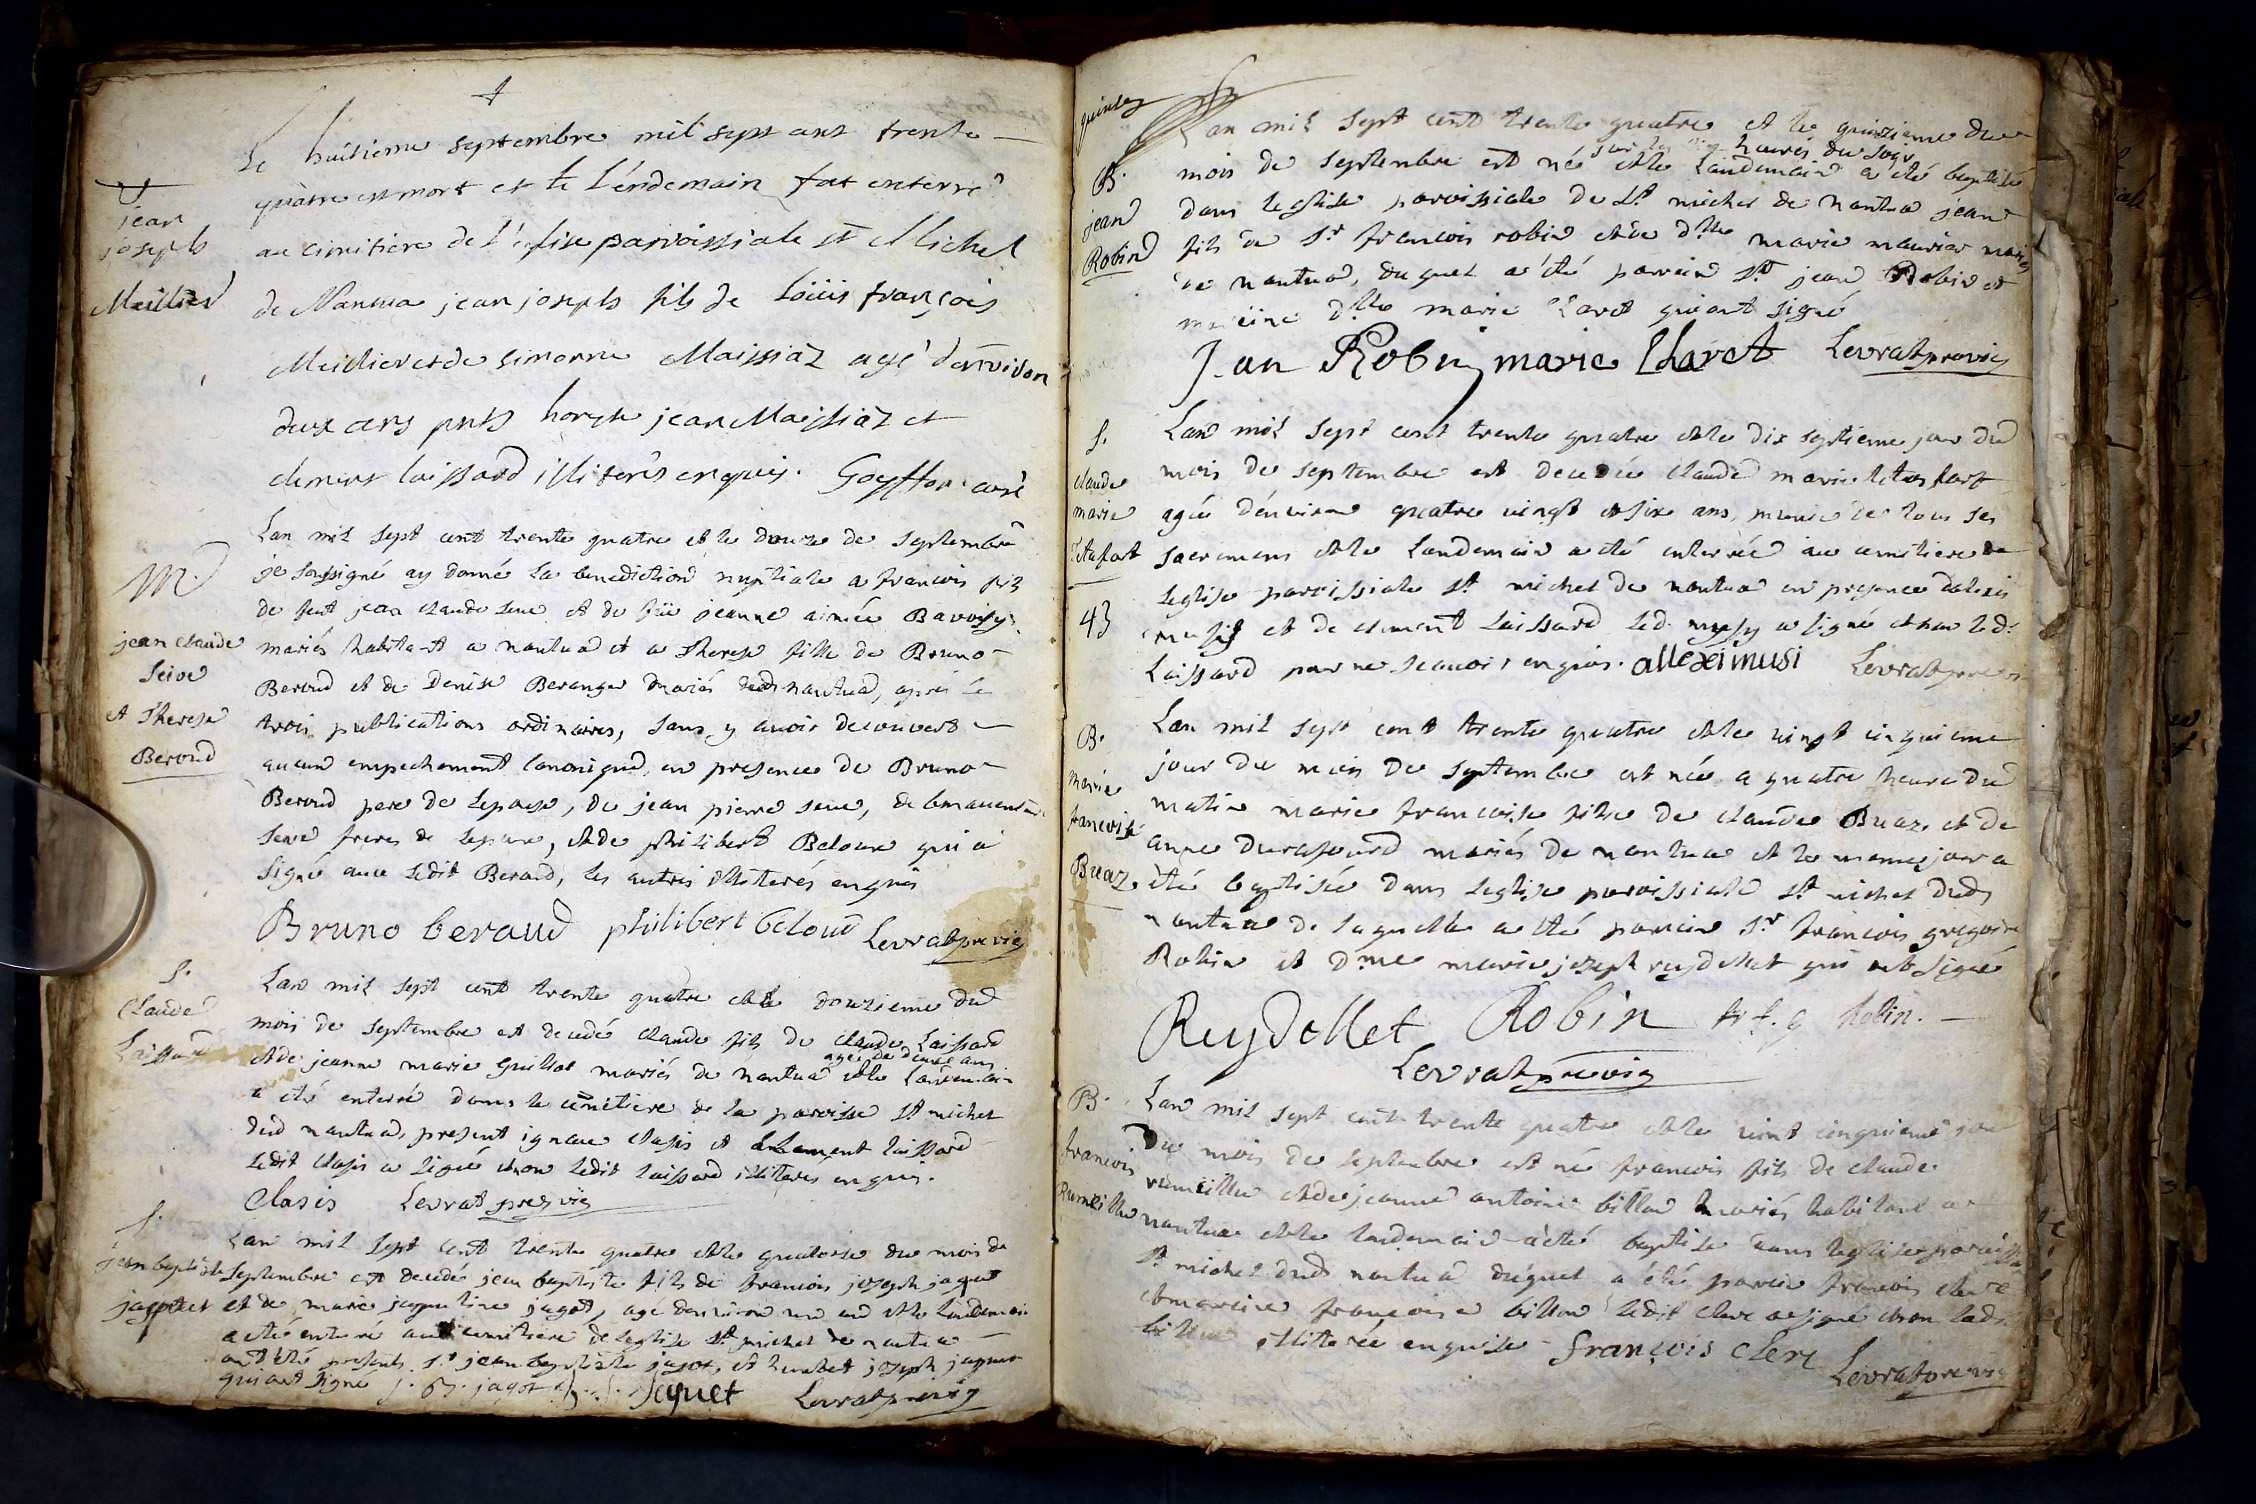 †
Le huitieme septembre mil sept cent trente
quatre est mort et le l'endemain fut enterré
au cimitiere de l'eglise parroissiale st Michel
de Nantua jean joseph fils de Loüis françois
Meillier et de simonne Maissiaz agé d'environ
deux ans pnts horste jean Maissiaz et
clement laissard illiterés enquis. Goyffon curé
jean
joseph
Meillier
Lan mil sept cent trente quatre et le douze de septembre
je soussigné ay donné la benediction nuptiale a francois fils
de feut jean claude seive et de füe jeanne aimée Bavoisy
mariés habitant a nantua et a Therese fille de Bruno
Beroud et de Denise Beranger mariés dud nantua, aprés le
trois publications ordinaires, sans y avoir decouvert
aucun empechement canonique, en presence de Bruno
Beroud pere de lepouse, de jean pierre seive, de
seive freres de lepoux, et de philibert Beloud qui a
signé avec ledit Beroud, les autres illiterés enquis
Bruno beraud philibert beloud Levrat pre vic
M.
jean claude
Seive
et Therese
Beroud
Lan mil sept cent trente quatre et le douzieme du
mois de septembre est decedé claude fils de claude Laissard
et de jeanne marie Guillot mariés de nantua agé de deux ans et le Landemain
a été enterré dans le cimetiere de la paroisse st michel
dud nantua, present ignace clasis et clement laissard
ledit clasis a signé et non ledit laissard illiterés enquis.
Clasis Levrat pre vic
S.
Claude
Laissard
Lan mil sept cent trente quatre et le quatorze du mois de
septembre est decedé jean baptiste fils de francois joseph jaquet
et de marie jaqueline jagot, agé denviron un an et le landemain
a été enterré au cimitiere de leglise st michel de nantua
ont été presents sr jean baptiste jagot, et humbert joseph jaquet
qui ont signé j. b. jagot h. j. jaquet Levrat pre vic
S.
jean baptiste
jaquet
quinsey
Lan mil sept cent trente quatre et le quinzieme du
mois de septembre est né sur les heures du soir et le Landemain a été baptisé
dans leglise paroissiale de St michel de nantua jean
fils de sr francois robin et de dlle marie maurier mariés
de nantua, duquel a été parrain sr jean Robin et
mareine dlle marie Claret qui ont signé
Jean Robin marie Claret Levrat pre vic
B.
jean
Robin
Lan mil sept cent trente quatre et le dix septieme jour du
mois de septembre est decedée claude marie tetafort
agée d'environ quatre vingt et six ans, munie de tous ses
sacremens et le Landemain a été enterrée au cimitiere de
leglise paroissiale st michel de nantua en presence dalexis
musy et de clement laissard led. musy a signé et non led.
Laissard pour ne scavoir enquis. allexi musi Levrat pre vic
S.
claude
marie
Tetafort
43
Lan mil sept cent trente quatre et le vingt cinquieme
jour du mois de septembre est née a quatre heure du
matin marie francoise fille de claude Buaz et de
anne durafourd mariés de nantua et le meme jour a
été baptisée dans leglise paroissiale st michel dud
nantua de laquelle a été parrain sr francois gregoire
Robin et Dme marie joseph reydellet qui ont signé
Reydellet Robin f. g Robin.
Levrat pre vic
B.
marie
francoise
Buaz
Lan mil sept cent trente quatre et le vint cinquieme jour
du mois de septembre est né francois fils de claude
rumeillie et de jeanne antoine billon mariés habitant a
nantua et le landemain a été baptisé dans leglise paroissiale
st michel dud nantua duquel a été parrain francois clerc
et mareine francoise billon ledit clerc a signé et non lad.
billon illiterée enquise - françois clerc Levrat pre vic
B.
francois
Rumeillie